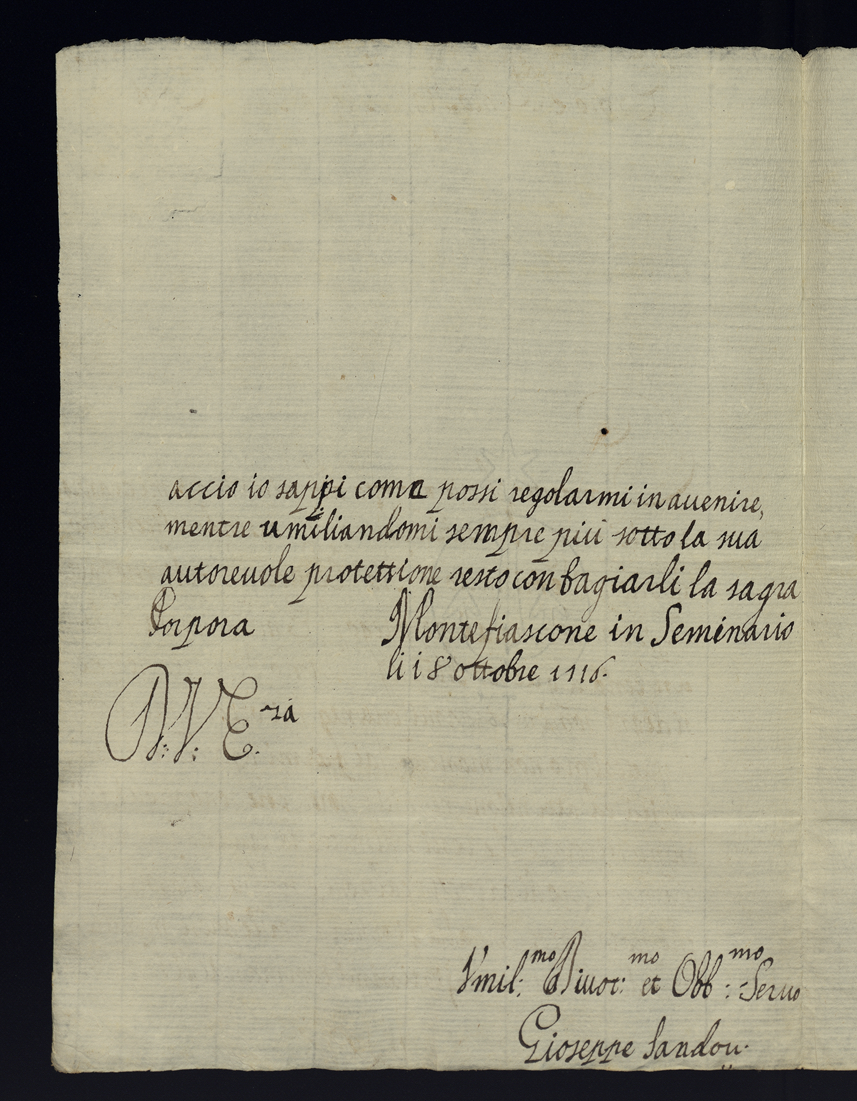 accio io sappi come possi regolarmi in auenire,
mentre umiliandomi sempre più sotto la sua
autoreuole protettione resto con bagiarli la sagra
Porpora Montefiascone in Seminario
li i8 ottobre 1716.
D: V: E.za
Vmil:mo Diuot:mo et Obb:mo Seruo
Gioseppe Sandou.